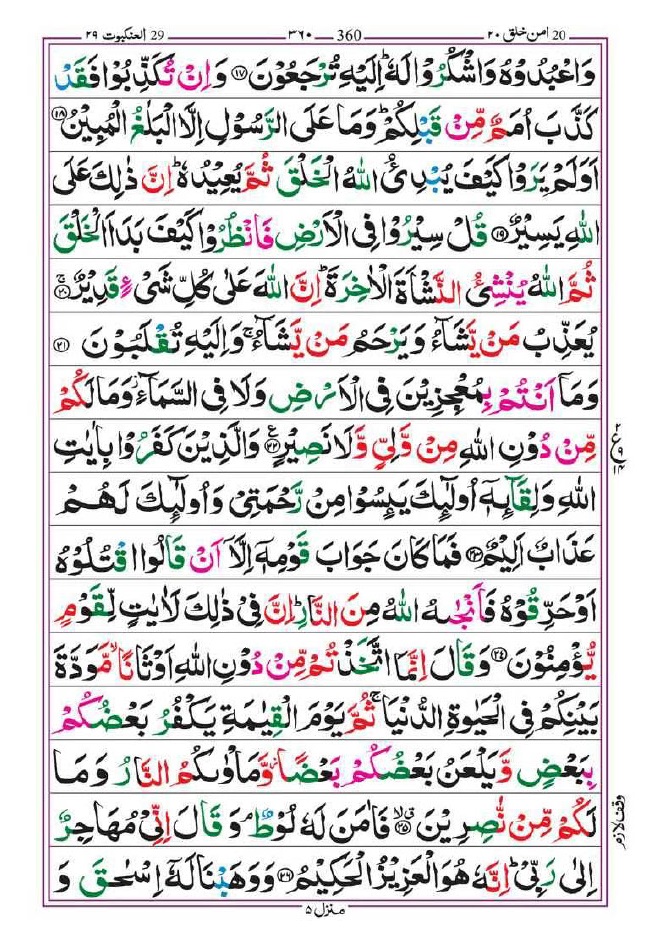 امن خلق ٢٠ 20 360 ٣٦٠ العنكبوت ٢٩ 29
وَاعْبُدُوْهُ وَاشْكُرُوْا لَهٗ ؕ اِلَيْهِ تُرْجَعُوْنَ ﴿۱۷﴾ وَاِنْ تُكَذِّبُوْا فَقَدْ
كَذَّبَ اُمَمٌ مِّنْ قَبْلِكُمْ ؕ وَمَا عَلَى الرَّسُوْلِ اِلَّا الْبَلٰغُ الْمُبِيْنُ ﴿۱۸﴾
اَوَلَمْ يَرَوْا كَيْفَ يُبْدِئُ اللّٰهُ الْخَلْقَ ثُمَّ يُعِيْدُهٗ ؕ اِنَّ ذٰلِكَ عَلَى
اللّٰهِ يَسِيْرٌ ﴿۱۹﴾ قُلْ سِيْرُوْا فِى الْاَرْضِ فَانْظُرُوْا كَيْفَ بَدَاَ الْخَلْقَ
ثُمَّ اللّٰهُ يُنْشِئُ النَّشْاَةَ الْاٰخِرَةَ ؕ اِنَّ اللّٰهَ عَلٰى كُلِّ شَىْءٍ قَدِيْرٌ ۚ﴿۲۰﴾
يُعَذِّبُ مَنْ يَّشَآءُ وَيَرْحَمُ مَنْ يَّشَآءُ ۚ وَاِلَيْهِ تُقْلَبُوْنَ ﴿۲۱﴾
وَمَاۤ اَنْتُمْ بِمُعْجِزِيْنَ فِى الْاَرْضِ وَلَا فِى السَّمَآءِ ؗ وَمَا لَكُمْ
مِّنْ دُوْنِ اللّٰهِ مِنْ وَّلِىٍّ وَّلَا نَصِيْرٍ ﴿۲۲﴾ وَالَّذِيْنَ كَفَرُوْا بِاٰيٰتِ
اللّٰهِ وَلِقَآئِهٖۤ اُولٰٓئِكَ يَئِسُوْا مِنْ رَّحْمَتِىْ وَاُولٰٓئِكَ لَهُمْ
عَذَابٌ اَلِيْمٌ ﴿۲۳﴾ فَمَا كَانَ جَوَابَ قَوْمِهٖۤ اِلَّاۤ اَنْ قَالُوا اقْتُلُوْهُ
اَوْ حَرِّقُوْهُ فَاَنْجٰىهُ اللّٰهُ مِنَ النَّارِ ؕ اِنَّ فِىْ ذٰلِكَ لَاٰيٰتٍ لِّقَوْمٍ
يُّؤْمِنُوْنَ ﴿۲۴﴾ وَقَالَ اِنَّمَا اتَّخَذْتُمْ مِّنْ دُوْنِ اللّٰهِ اَوْثَانًا ۙ مَّوَدَّةَ
بَيْنِكُمْ فِى الْحَيٰوةِ الدُّنْيَا ۚ ثُمَّ يَوْمَ الْقِيٰمَةِ يَكْفُرُ بَعْضُكُمْ
بِبَعْضٍ وَّيَلْعَنُ بَعْضُكُمْ بَعْضًا ؗ وَّمَاْوٰىكُمُ النَّارُ وَمَا
لَكُمْ مِّنْ نّٰصِرِيْنَ ﴿۲۵﴾ فَاٰمَنَ لَهٗ لُوْطٌ ۘ وَقَالَ اِنِّىْ مُهَاجِرٌ
وقف لازم
اِلٰى رَبِّىْ ؕ اِنَّهٗ هُوَ الْعَزِيْزُ الْحَكِيْمُ ﴿۲۶﴾ وَوَهَبْنَا لَهٗۤ اِسْحٰقَ وَ
منزل ۵